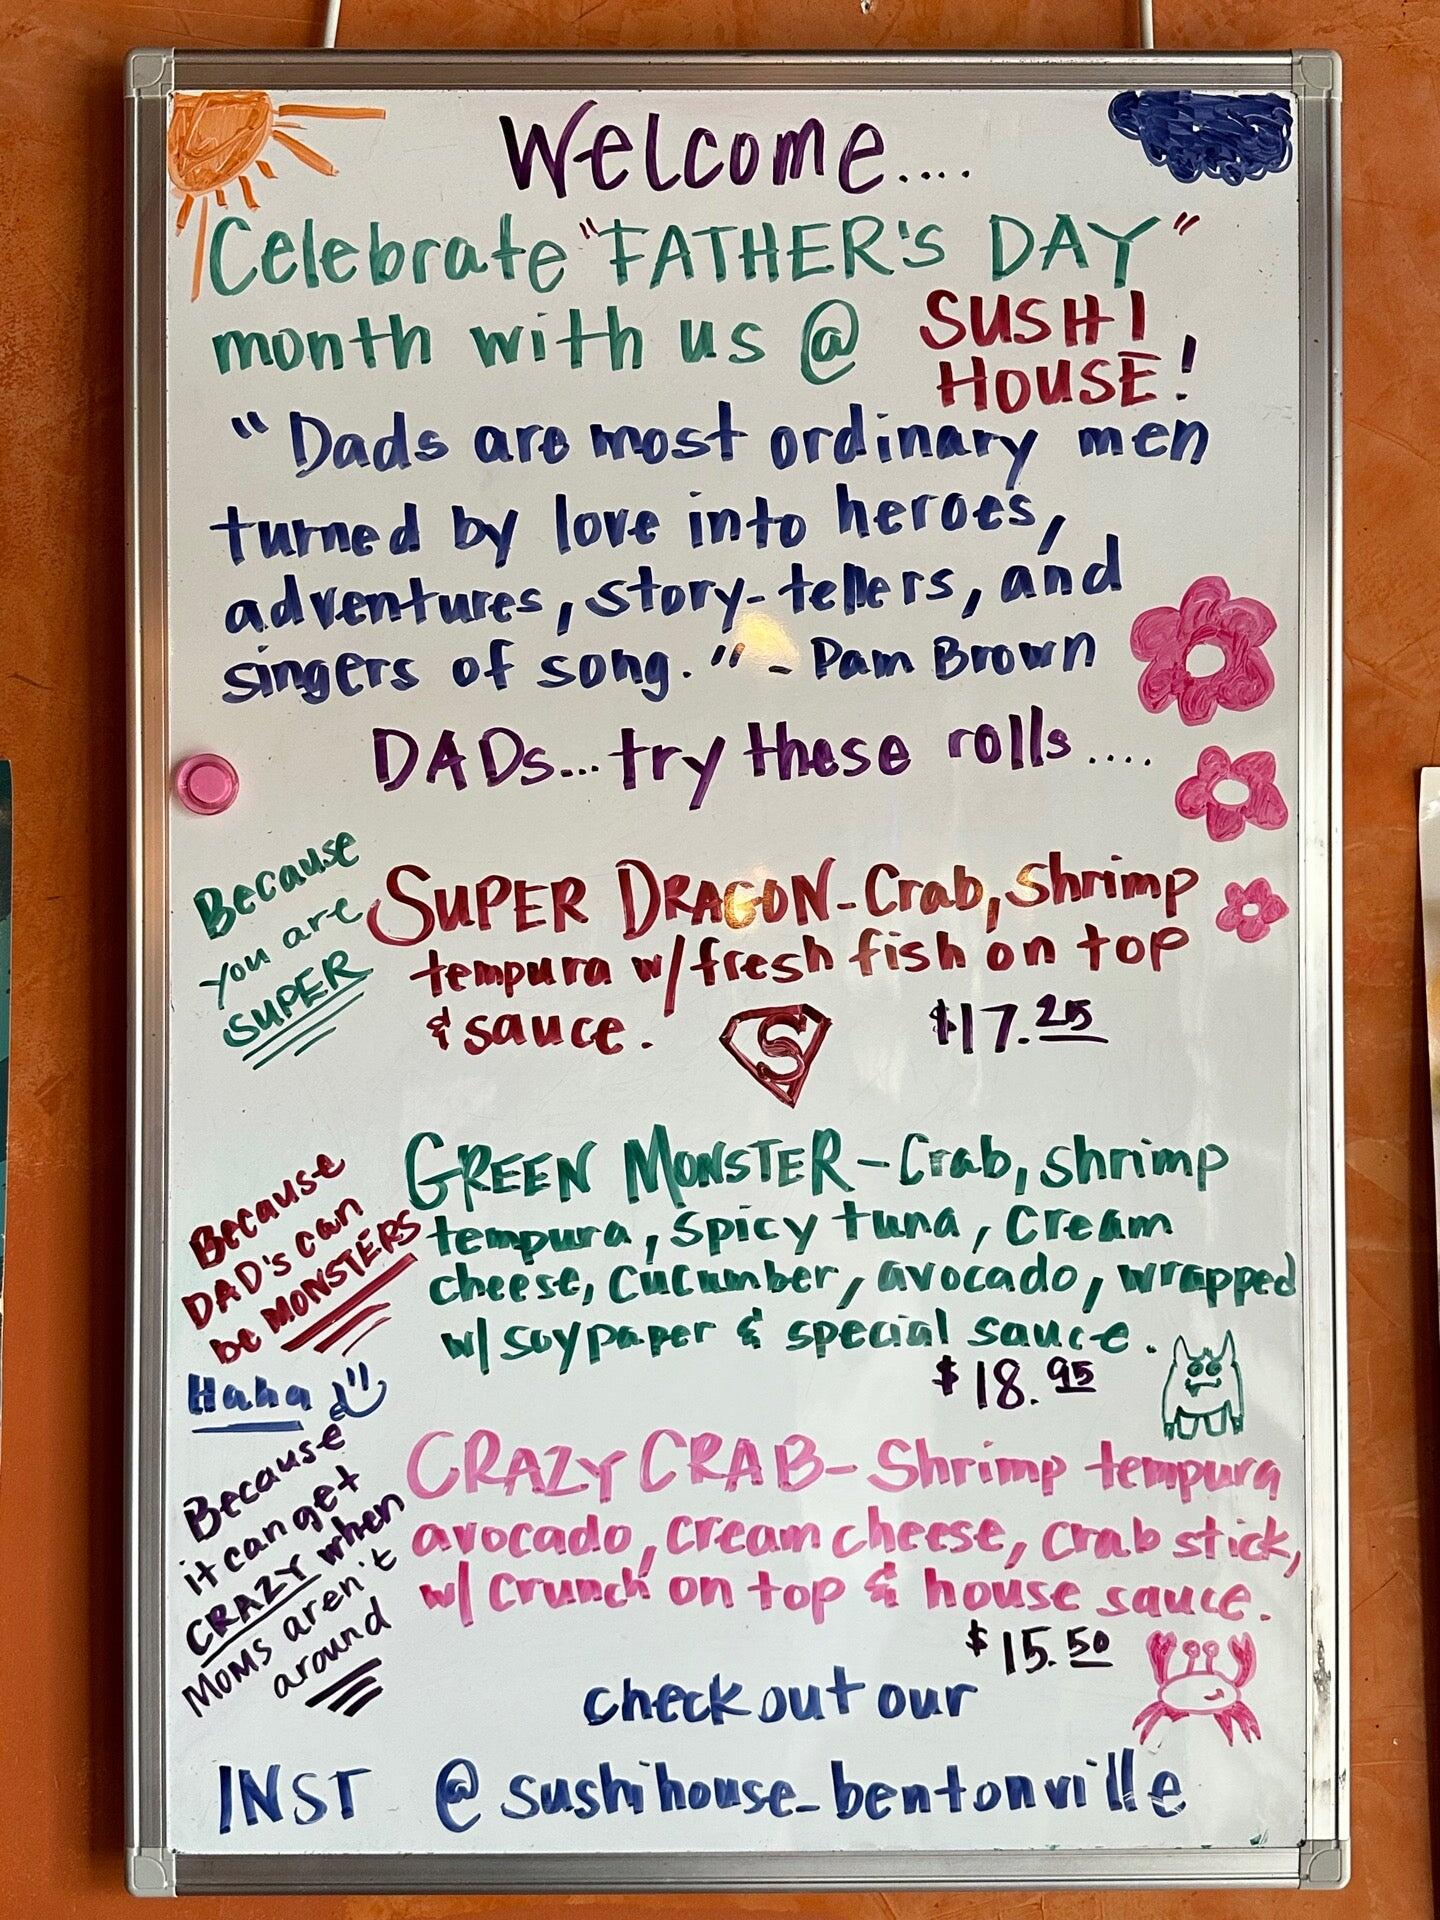 Welcome....
Celebrate "FATHER'S DAY"
month with us @ SUSHI
HOUSE!
"Dads are most ordinary men
turned by love into heroes,
adventures, story-tellers, and
singers of song." - Pam Brown
DADs...try these rolls....
Because
you are
SUPER
SUPER DRAGON - Crab, shrimp
tempura w/ fresh fish on top
& sauce.
S
$17.25
Because
DAD's can
be MONSTERS
Haha
GREEN MONSTER - Crab, shrimp
tempura, spicy tuna, cream
cheese, cucumber, avocado, wrapped
w/ soy paper & special sauce.
$18.95
Because
it can get
CRAZY when
Moms aren't
around
CRAZY CRAB - Shrimp tempura
avocado, cream cheese, crab stick,
w/ crunch on top & house sauce.
$15.50
check out our
INST @sushihouse_bentonville